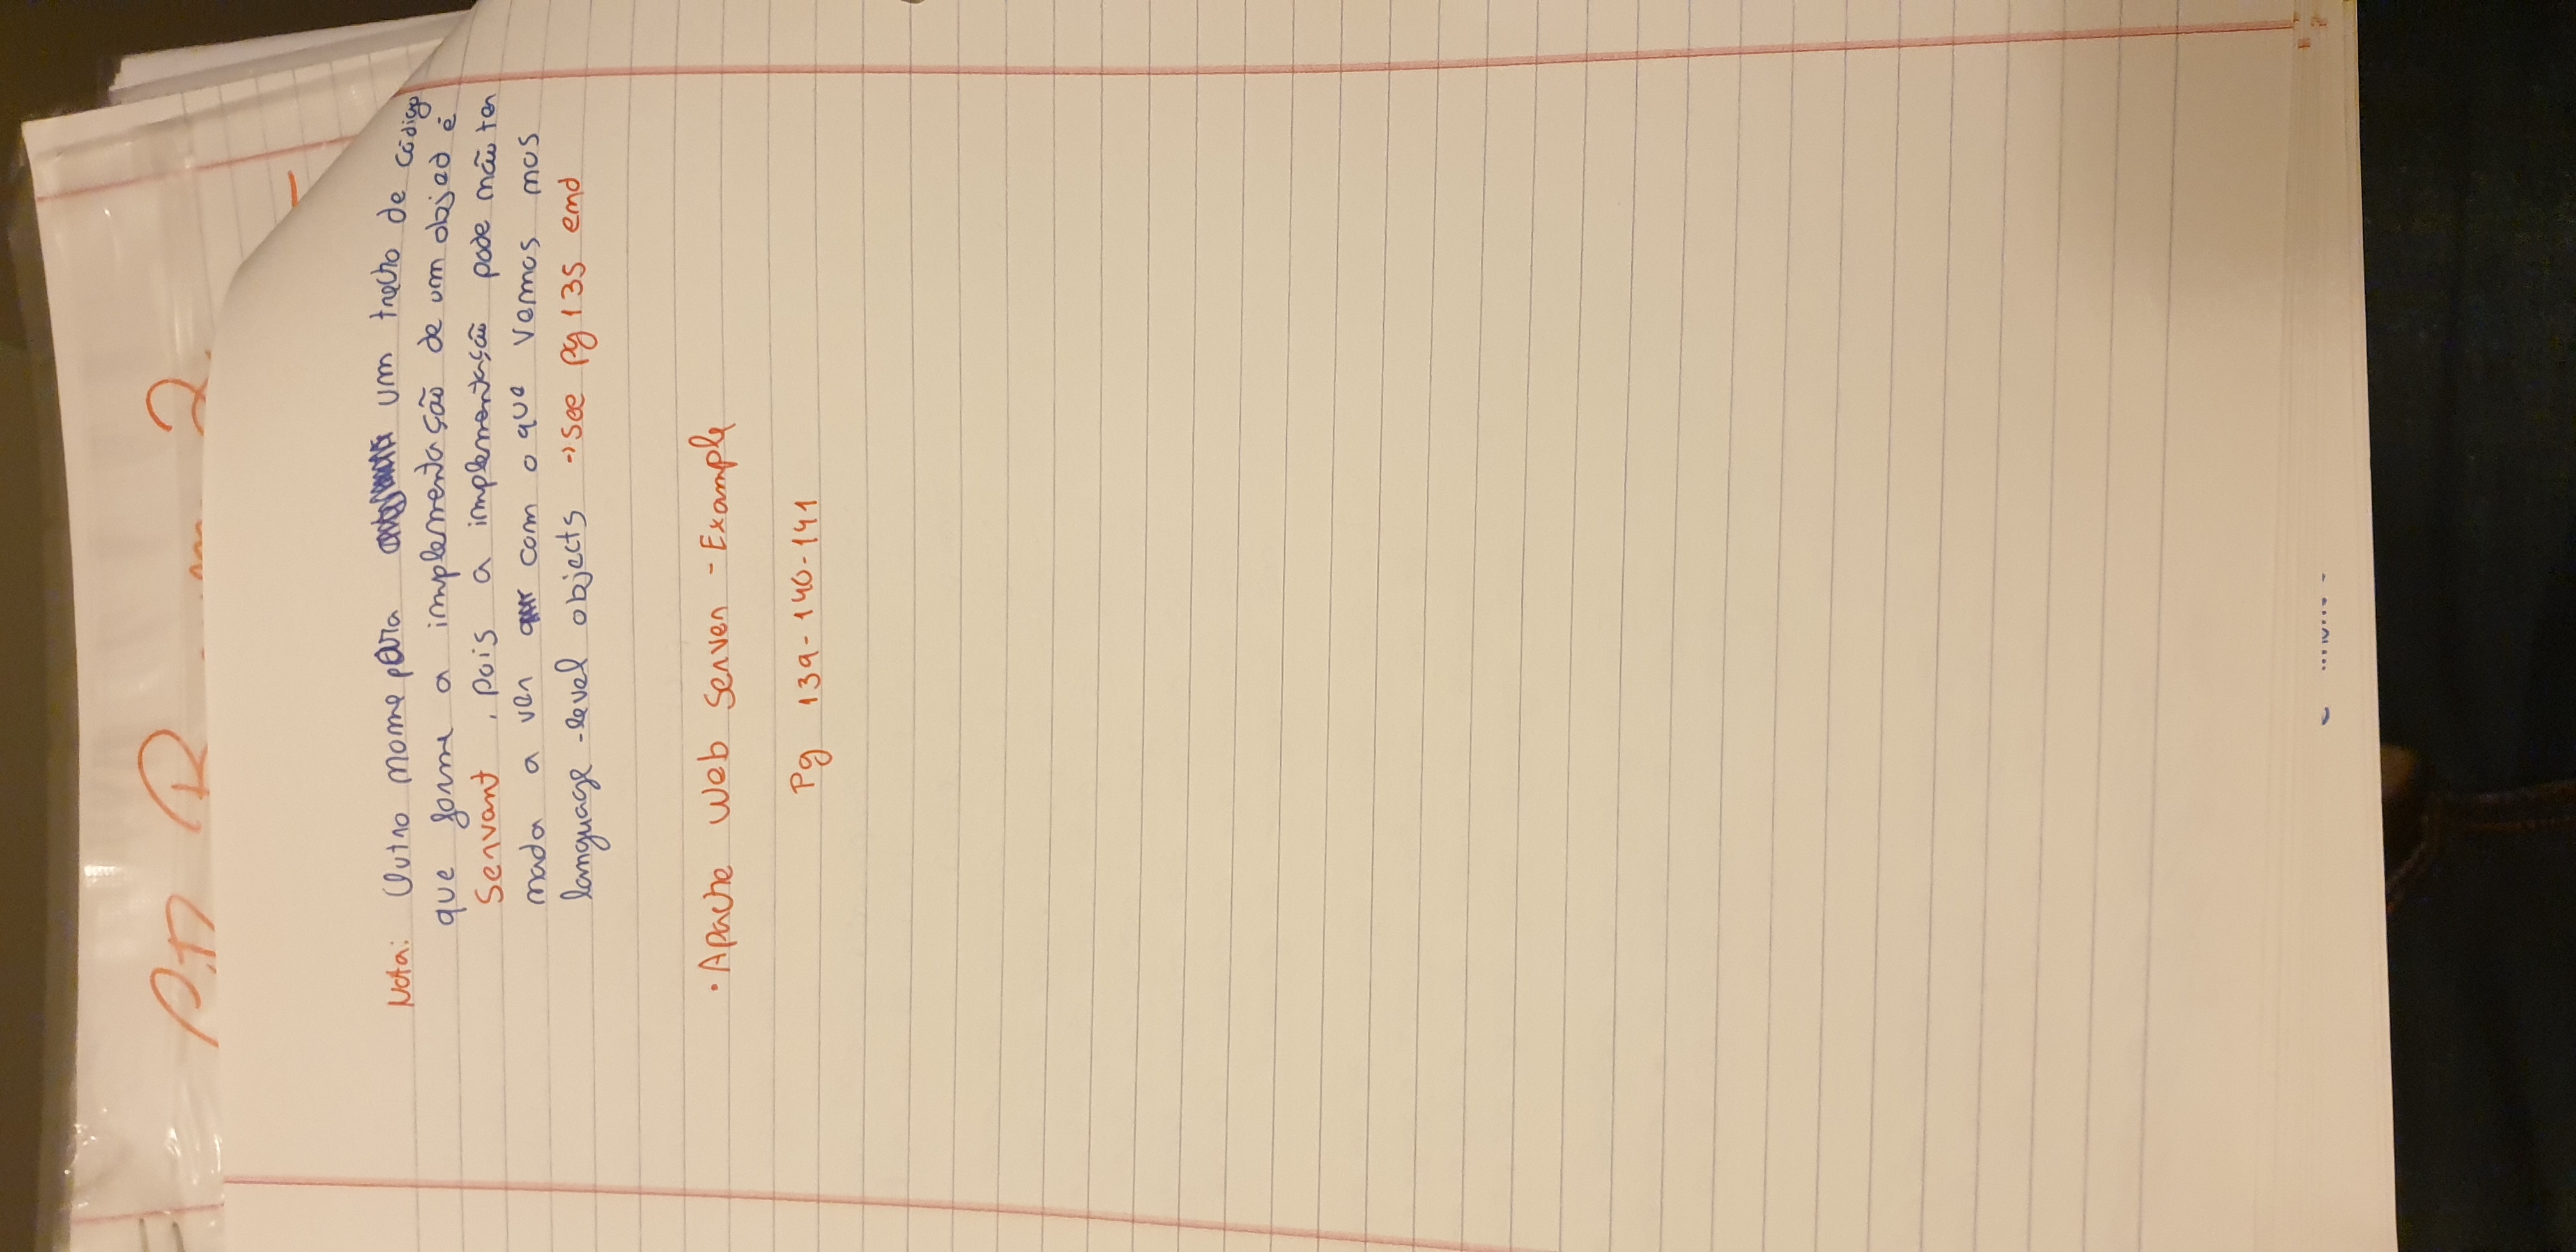 Nota: Outro nome para um trecho de código
que forme a implementação de um objed é
Servant, pois a implementação pode não ter
nada a ver com o que vemos nos
language-level objects → see pg 135 end
• Apache Web Server - Example
Pg 139-140-141